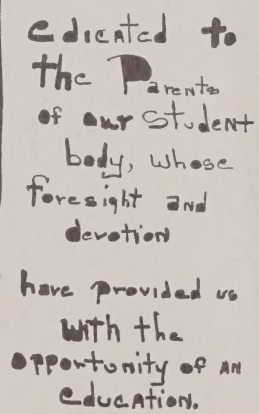 edicated to
the Parents
of our Student
body, whose
foresight and
devotion
have provided us
with the
opportunity of an
education.